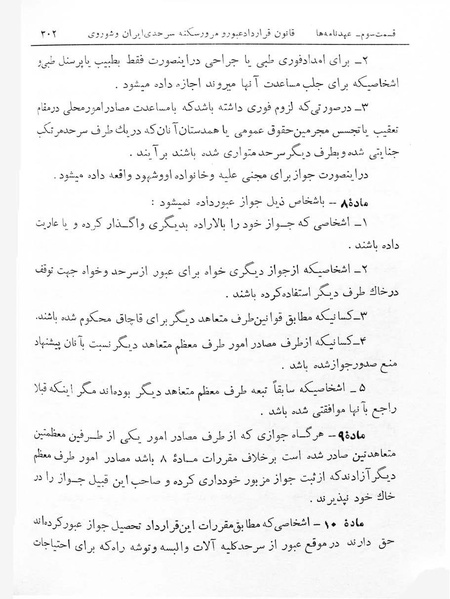 قسمت سوم - عهدنامه‌ها قانون قرارداد عبور و مرور سکنه سرحدی ایران و شوروی ۳۰۲
۲- برای امداد فوری طبی یا جراحی در اینصورت فقط بطبیب یا پرسنل طبی و
اشخاصیکه برای جلب مساعدت آنها میروند اجازه داده میشود .
۳- در صورتی که لزوم فوری داشته باشد که با مساعدت مصادر امور محلی در مقام
تعقیب یا تجسس مجرمین حقوق عمومی یا همدستان آنان که در یك طرف سرحد مرتکب
جنایتی شده و بطرف دیگر سرحد متواری شده باشند بر آیند .
در اینصورت جواز برای مجنی علیه و خانواده او و شهود واقعه داده میشود .
مادهٔ ۸ - باشخاص ذیل جواز عبور داده نمیشود :
۱- اشخاصی که جواز خود را بالاراده بدیگری واگذار کرده و یا عاریت
داده باشند .
۲- اشخاصیکه از جواز دیگری خواه برای عبور از سرحد و خواه جهت توقف
در خاك طرف دیگر استفاده کرده باشند .
۳- کسانیکه مطابق قوانین طرف متعاهد دیگر برای قاچاق محکوم شده باشند.
۴- کسانیکه از طرف مصادر امور طرف معظم متعاهد دیگر نسبت بآنان پیشنهاد
منع صدور جواز شده باشد .
۵ - اشخاصیکه سابقاً تبعه طرف معظم متعاهد دیگر بوده‌اند مگر اینکه قبلا
راجع بآنها موافقتی شده باشد .
مادهٔ ۹ - هر گاه جوازی که از طرف مصادر امور یکی از طرفین معظمتین
متعاهدتین صادر شده است بر خلاف مقررات مادهٔ ۸ باشد مصادر امور طرف معظم
دیگر آزادند که از ثبت جواز مزبور خودداری کرده و صاحب این قبیل جواز را در
خاك خود نپذیرند .
مادهٔ ۱۰ - اشخاصی که مطابق مقررات این قرارداد تحصیل جواز عبور کرده‌اند
حق دارند در موقع عبور از سرحد کلیه آلات و البسه و توشه راه که برای احتیاجات